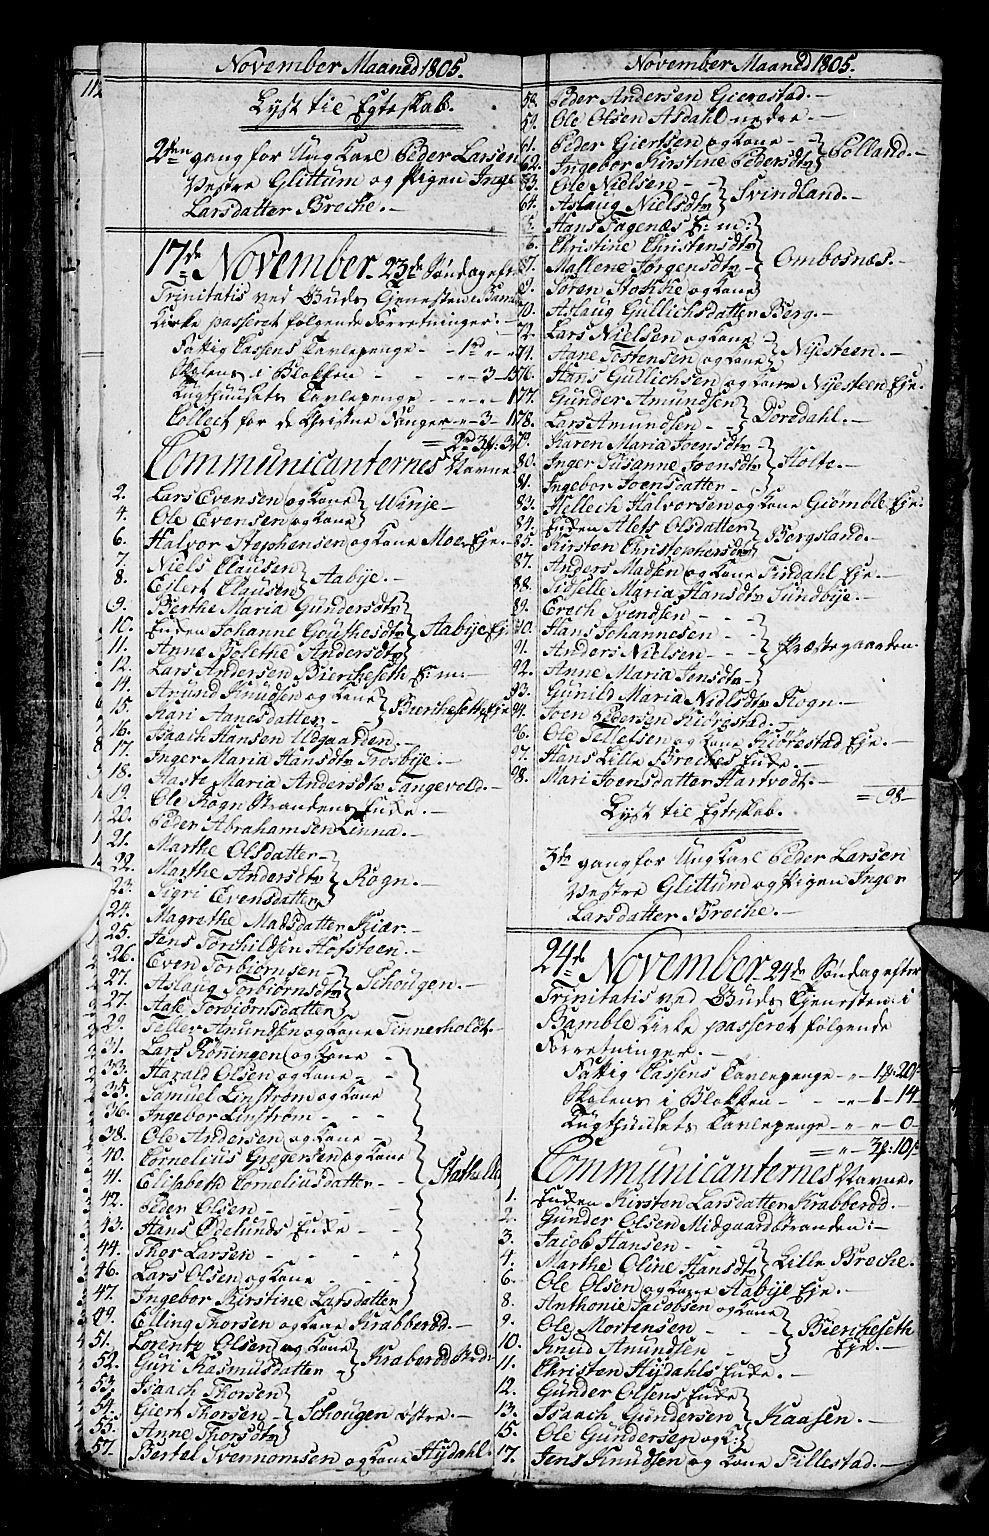 November Maaned 1805.
112
Lyst til Egteskab.
2den gang for Ung Karl Peder Larsen
Vestre Glittum og Pigen Inge
Larsdatter Breche.-
17de November. 23de Søndag efter
Trinitatis ved Guds Tjenesten i Bamble
Kirke passeret følgende Forretninger.-
Fattig Cassens Tavlepenge
Skolens i Blokken - - - 3 - 15
Tugthuusets Tavlepenge
Collect for de Christne Fanger - 3 -
Communicanternes Navne
2. Lars Evensen og Kone
4. Ole Evensen og Kone } Winje.-
6. Halvor Stephensen og Kone Moe Eje.-
7. Niels Clausen
8. Eilert Clausen } Aabije.-
9. Berthe Maria Gundersdtr
10. Enken Johanne Gouthesdtr } Aabije Eje
11. Anne Dorethe Andersdtr
12. Lars Andersen Bierkeseth E: m:-
14. Amund Knudsen og Kone
15. Kari Aanesdatter } Bierkeseth Eje
16. Isaach Hansen Udgaarden.-
17. Inger Maria Hansdtr Trosbije.-
18. Aaste Maria Andersdtr Tangevold.-
19. Ole Rogn Strandens Enke.-
20. Peder Abrahamsen Linna.-
21. Marthe Olsdatter
22. Marthe Andersdtr } Rogn.-
23. Sigri Evensdatter
24. Magrethe Madsdatter Kjær.-
25. Jens Torchildsen Hafsteen.-
26. Even Torbiørnsen
27. Aslaug Torbiørnsdtr } Schougen.-
27. Aase Torbiørnsdatter
29. Teller Amundsen og Kone Finnerholdt.
31. Lars Rønningen og Kone
33. Harald Olsen og Kone
35. Samuel Linstrøm og Kone
36. Ingebor Linstrøm
38. Ole Andersen og Kone
40. Cornelius Gregersen og Kone
41. Elisabeth Corneliusdatter } Stathelle
42. Peder Olsen
43. Hans Ødelunds Enke
44. Thor Larsen
46. Lars Olsen og Kone
47. Ingebor Kirstine Larsdatter
49. Elling Thorsen og Kone Krabberød.-
51. Lorentz Olsen og Kone
52. Guri Rasmusdatter } Kraberød
53. Isaach Thorsen
54. Giert Thorsen } Schougen Østre.-
55. Anne Thorsdtr
57. Bertel Svennomsen og Kone Hydahl
November Maaned 1805.
58. Peder Andersen Gierestad.-
59. Ole Olsen Asdahl nedre.-
61. Peder Giertsen og Kone
62. Ingebor Kirstine Pedersdtr } Polland.-
63. Ole Nielsen
64. Aslaug Nielsdtr } Svindland.-
5. Hans Fagenæs E: m:
6. Christine Christensdtr
67. Mallene Jørgensdtr } Ombosnæs.-
69. Søren Stokke og Kone
70. Aslaug Gullichsdatter Berg.-
72. Lars Nielsen og Kone
74. Hane Tostensen og Kone } Nijesteen.-
76. Hans Gullichsen og Kone Nijesteen Eje.
77. Gunder Amundsen
78. Lars Amundsen } Dordahl.-
79. Karen Maria Joensdtr
80. Inger Susanne Joensdtr } Stolte.-
81. Ingebor Joensdatter
83. Hellech Halvorsen og Kone Giømble Eje.
84. Enken Alets Olsdatter
85. Kirsten Christophersdtr } Bergsland.-
87. Anders Madsen og Kone Findahl Eje.-
88. Sidselle Maria Hansdtr Sundbije.-
89. Erech Svendsen
90. Hans Johannesen
91. Anders Nielsen } Præstegaarden
92. Anne Maria Jensdtr
93. Gunild Maria Nielsdtr Rogn.-
94. Joen Pedersen Kiørestad.-
96. Ole Tellefsen og Kone Kiørestad Eje.-
97. Hans Lille Breches Enke.-
98. Mari Joensdatter Hartvedt.-
= 98
Lyst til Egteskab.
3die gang for Ung Karl Peder Larsen
Vestre Glittum og Pigen Inger
Larsdatter Breche.-
24de November. 24de Søndag efter
Trinitatis ved Guds Tjenesten i
Bamble Kirke passeret følgende
Forretninger.-
Fattig Cassens Tavlepenge
Skolens i Blokken - - - 1 - 14
Tugthuusets Tavlepenge - - - 0 -
Communicanternes Navne.
1. Enken Kirsten Larsdatter Krabberød.-
2. Gunder Olsen Midgaardstranden.-
3. Jacob Hansen
4. Marthe Oline Hansdtr } Lille Breche.
6. Ole Olsen og Kone Aabije Eje.-
8. Anthonie Jacobsen og Kone
9. Ole Mortensen } Bierkeseth
10. Knud Amundsen Eje.-
11. Christen Hydahls Enke.-
12. Gunder Olsens Enke
13. Isaach Gundersen } Kaasen.-
15. Ole Gundersen og K:
17. Jens Knudsen og Kone Fillestad.-